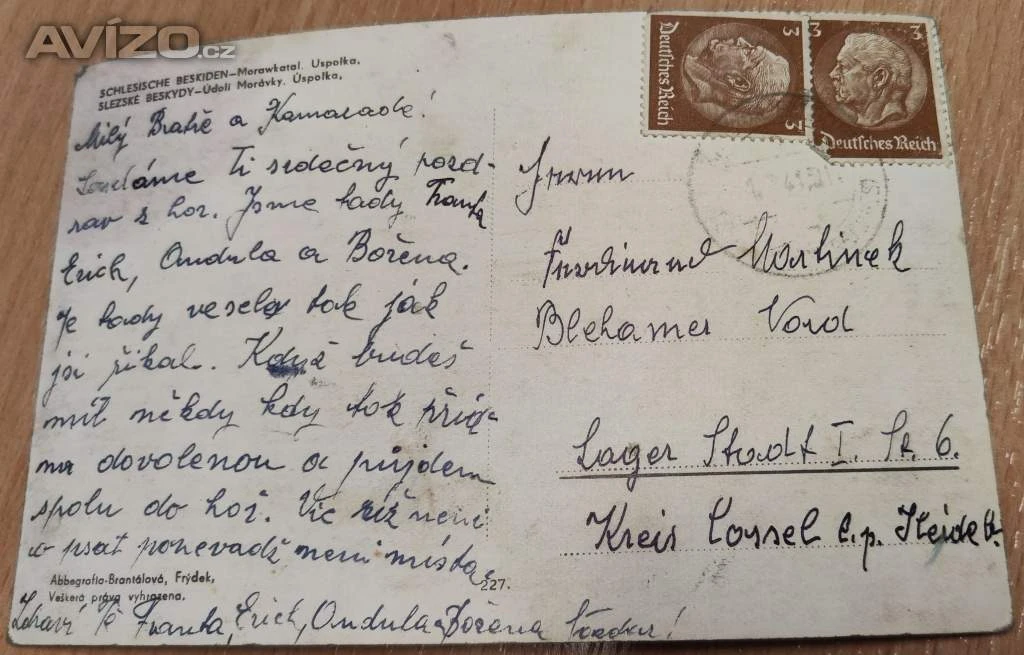 AVÍZO.cz
SCHLESISCHE BESKIDEN—Morawkatal. Uspolka,
SLEZSKÉ BESKYDY—Údolí Morávky. Úspolka,
Milý Bratře a Kamaráde!
Ti srdečný pozd-
rav z hor. Jsme tady Franta
Erich, Ondula a Božena.
Je tady veselo tak jak
jsi říkal. Když budeš
mít někdy kdy tak
dovolenou a půjdem
spolu do hor. Víc již není
psat ponevadž neni místa
Abbegrafia-Brantálová, Frýdek,
Veškerá práva vyhrazena.
227.
Zdraví Tě Franta, Erich, Ondula Božena
3
Deutsches Reich
3
3
Deutsches Reich
Herrn
Ferdinand Martinek
Blehamer Vord
Lager Stadt I. St. 6.
Kreis Cossel